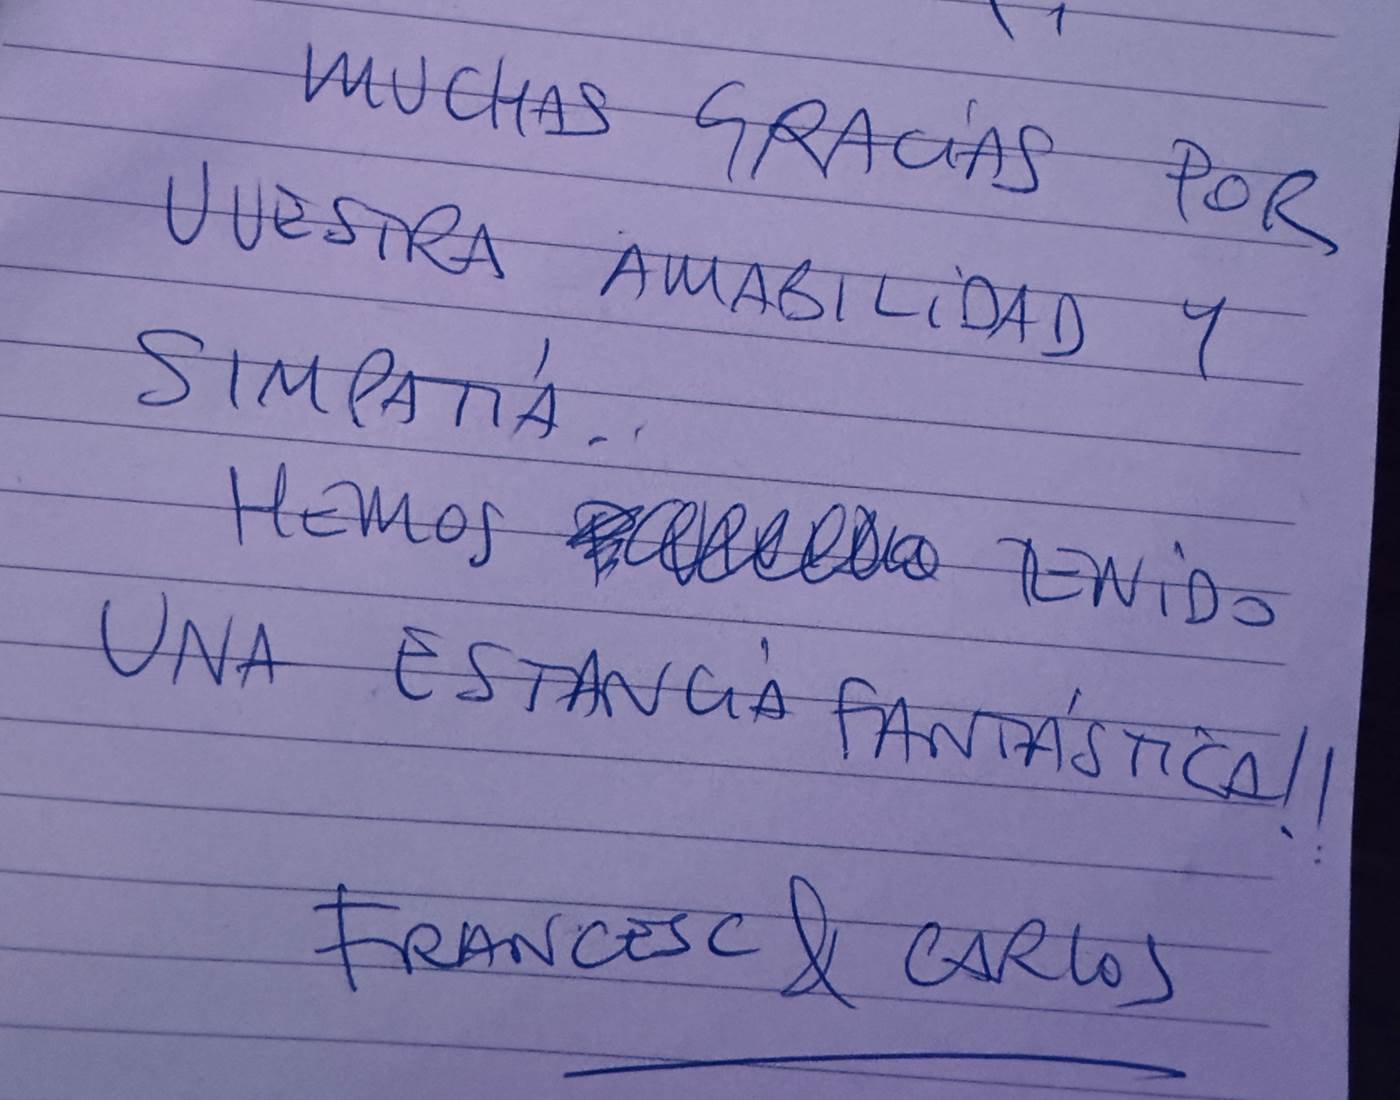 MUCHAS GRACIAS POR
VUESTRA AMABILIDAD Y
SIMPATIÁ..
HEMOS TENIDO
UNA ESTANCIA FANTÁSTICA!!
FRANCESC & CARLOS